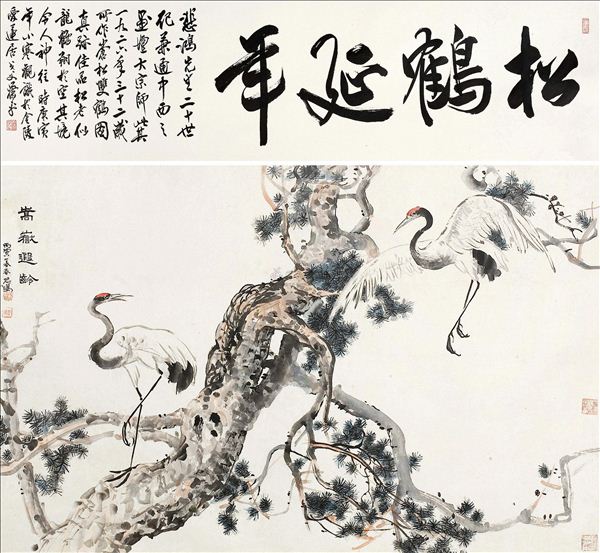 松鶴延年
悲鴻先生二十世
紀兼通中西之
畫壇大宗師此其
一九二六年三十二歲
所作蒼松與鶴圖
真跡佳品松老似
龍鶴翔於空其境
令人神往時庚寅
年小寒觀識於金陵
愛蓮居戈父蕭平
嵩嶽遐齡
丙寅春悲鴻